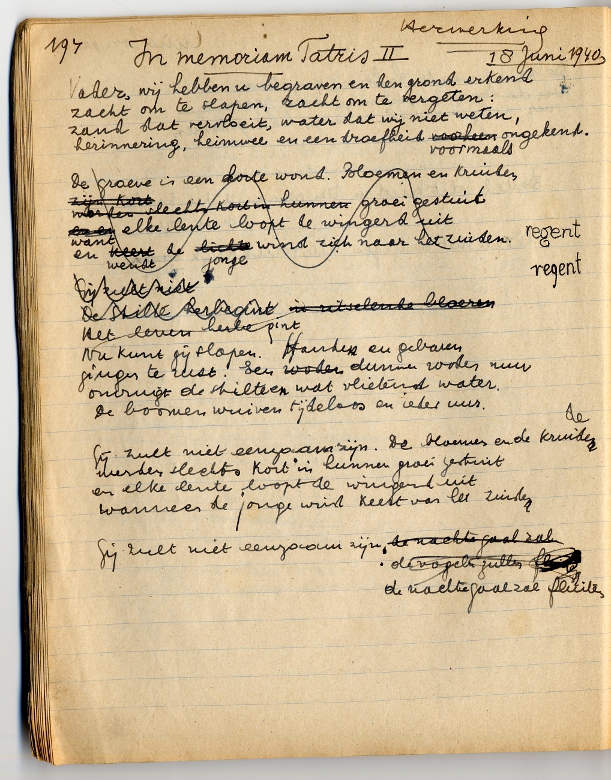 197
Herwerking
In memoriam Patris II
18 Juni 1940
Vader, wij hebben u begraven en den grond erkend
zacht om te slapen, zacht om te vergeten:
zand dat vervloeit, water dat wij niet weten,
herinnering, heimwee en een droefheid voorheen ongekend.
voormaals
De groeve is een dorte wond. Bloemen en kruiden
zijn kort
worden slechts kort in hunnen groei gestuit
en en elke lente loopt de wingerd uit
want
en keert de lichte wind zich naar het zuiden.
wendt jonge
regent
regent
Gij zult niet
De stilte herbegint in ritselende bloeren
Het leven herbegint
Nu kunt gij slapen. Handen en gebaren
gingen te rust. Een dunnen
de stilte en wat vlietend water.
De boomen wuiven tijdeloos en ieder uur.
de
Gij zult niet eenzaam zijn. De bloemen en de kruiden
werden slechts kort in hunnen groei gestuit
en elke lente loopt de wingerd uit
wanneer de jonge wind keert van het zuiden
Gij zult niet eenzaam zijn, de nachtegaal zal
de vogels zullen
de nachtegaal zal fluiten